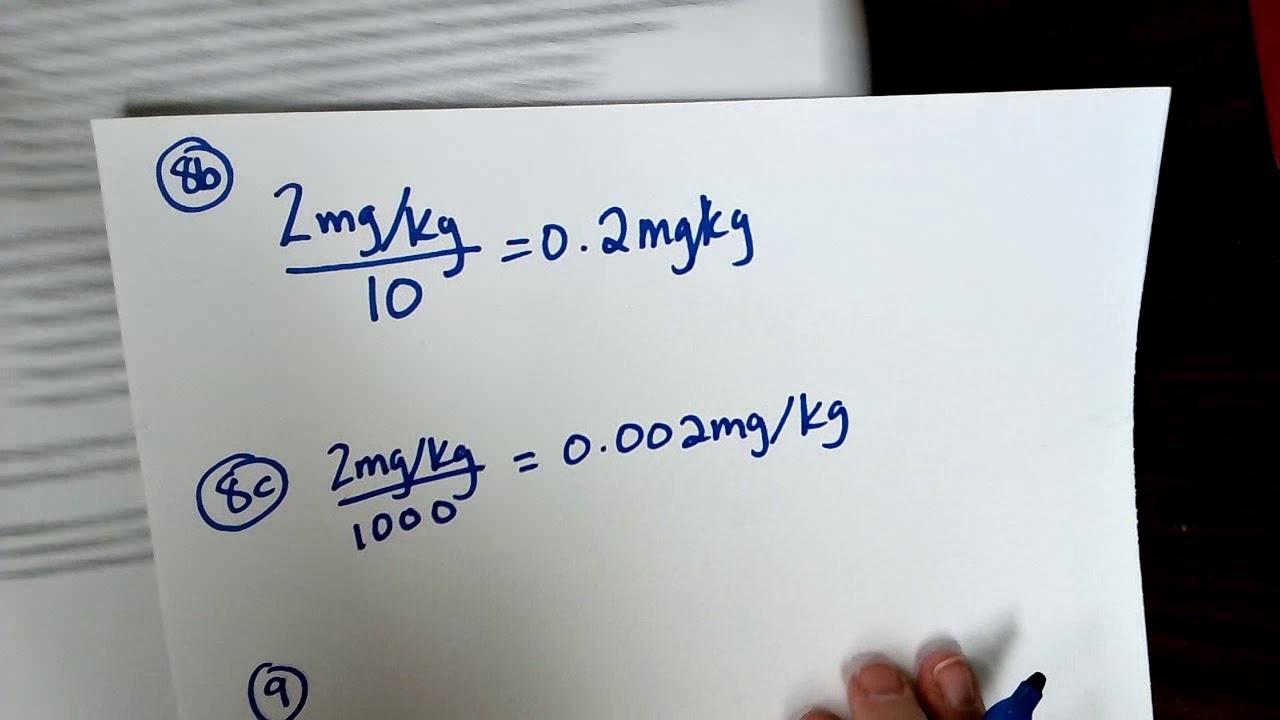 8b
2mg/kg
= 0.2mgkg
10
8c
2mg/kg
= 0.002mg/kg
1000
9